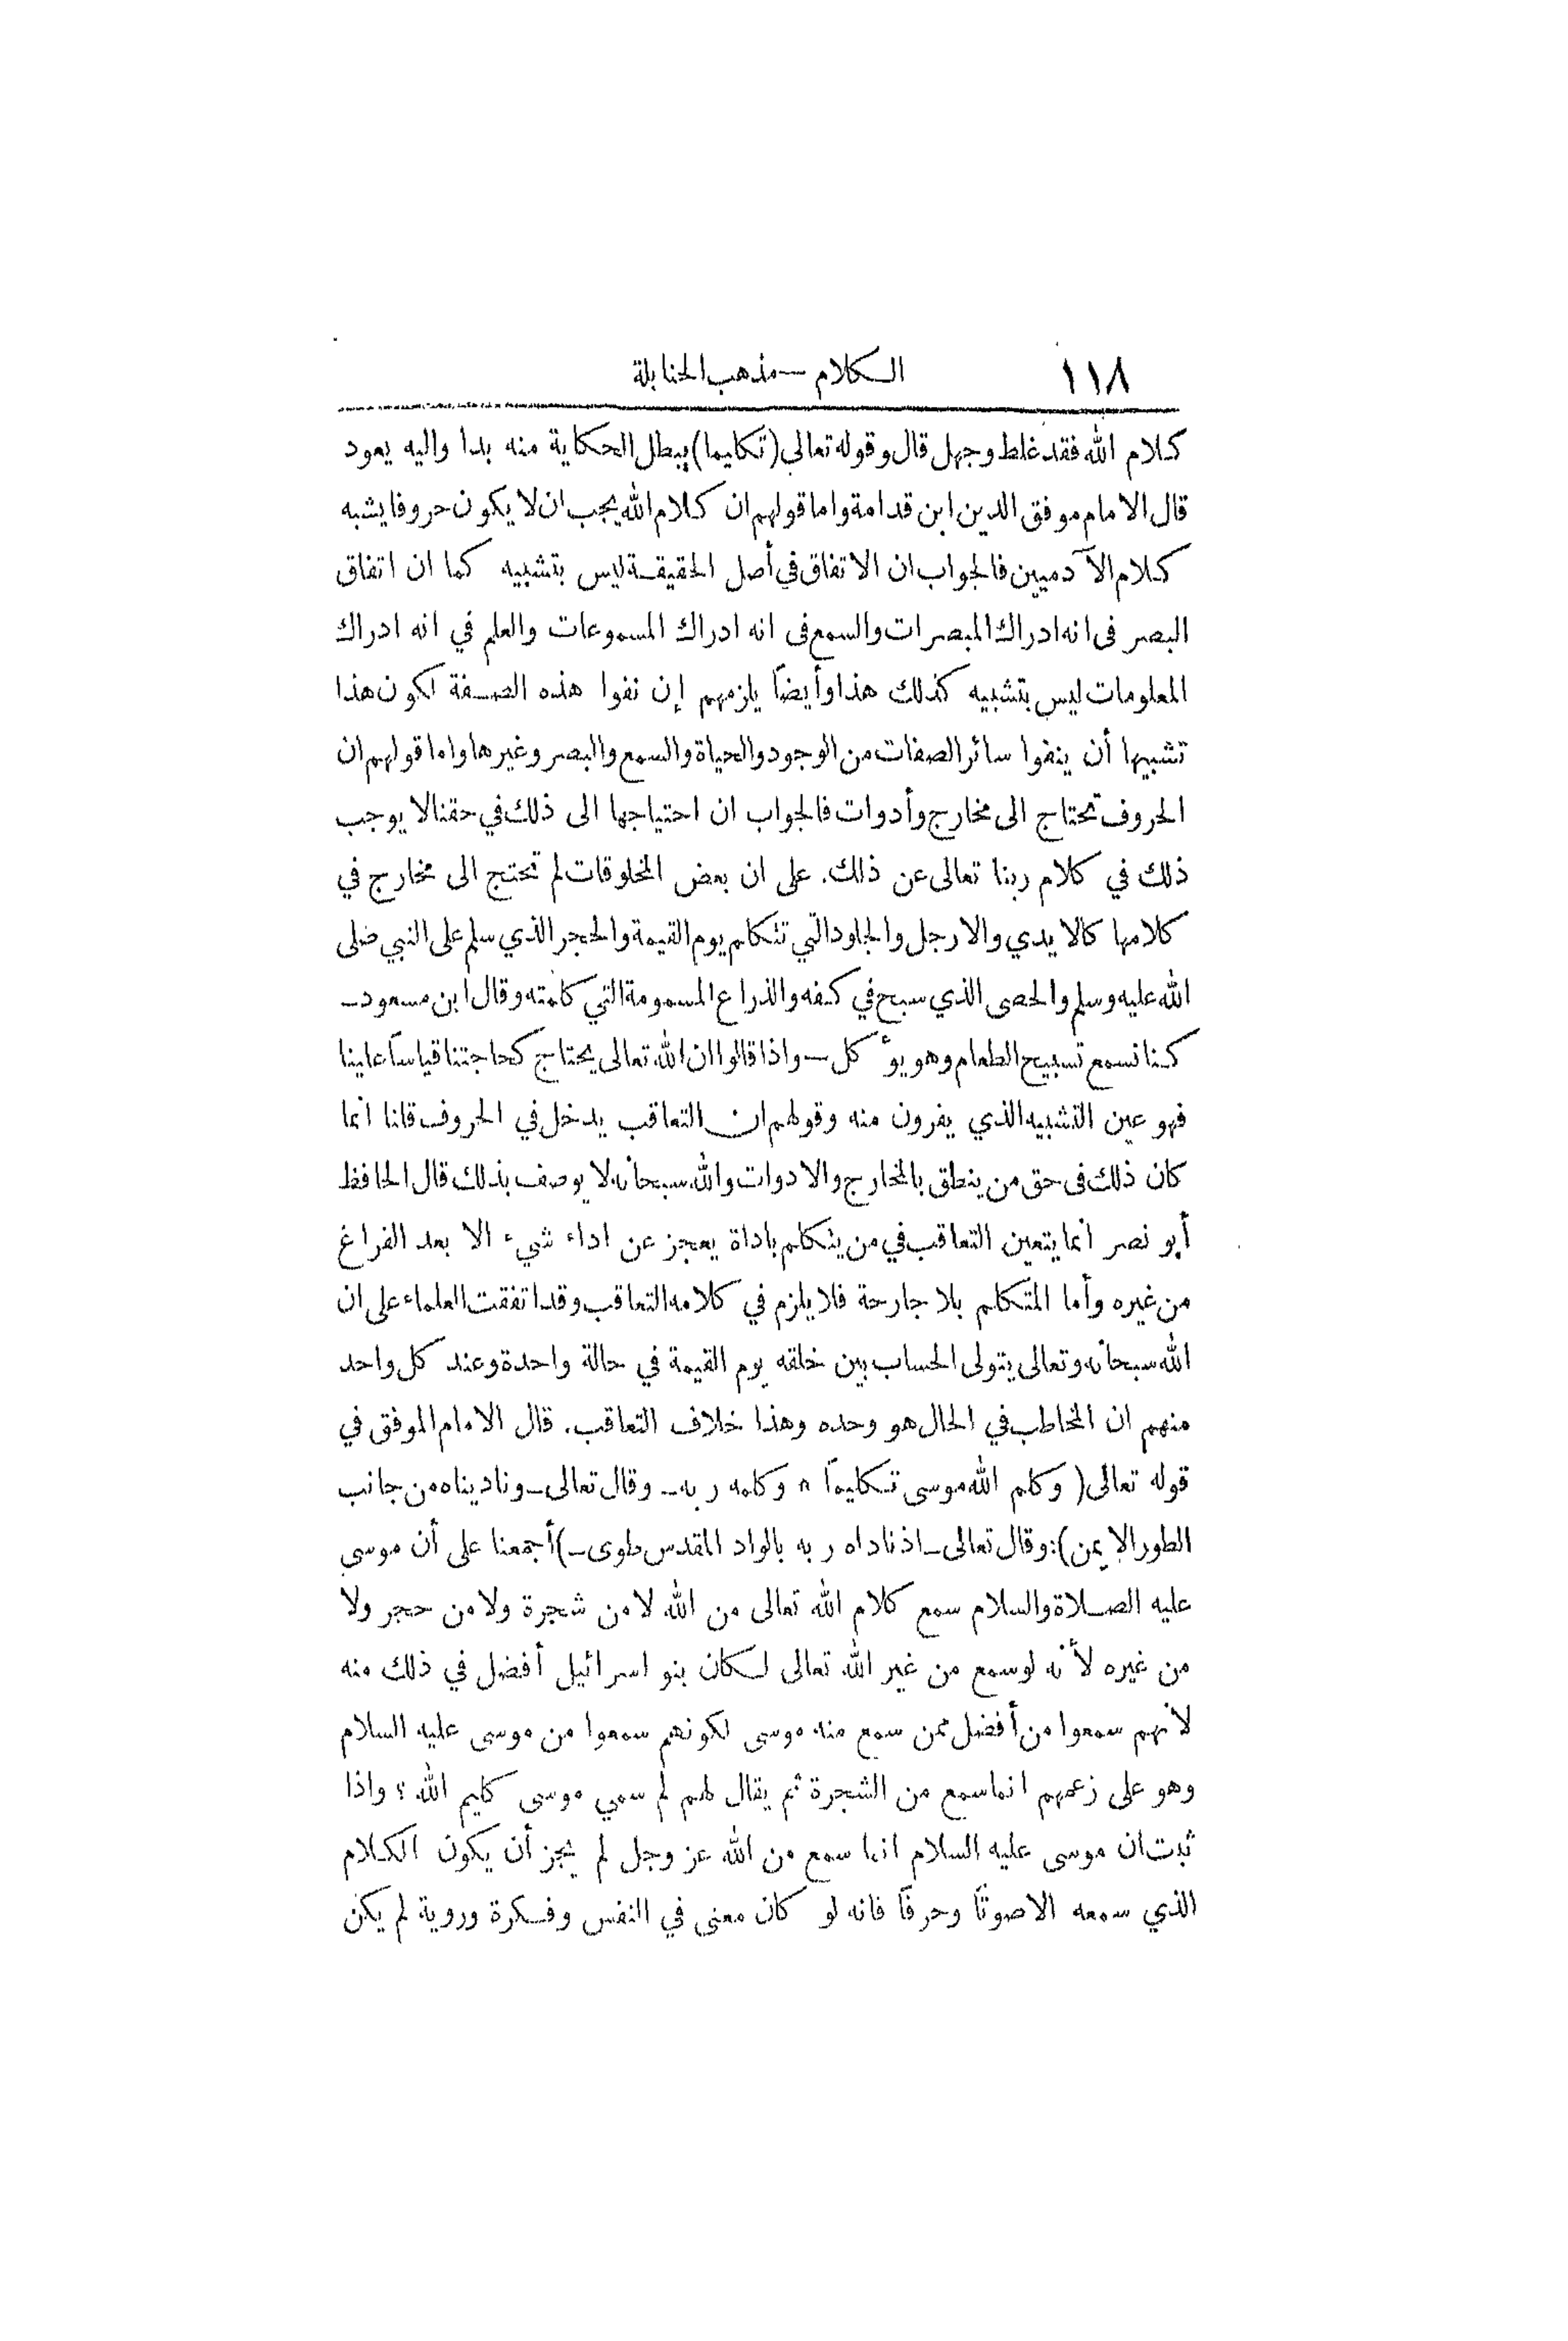 ١١٨ الكلام — مذهب الحنابلة
كلام الله فقد غلط وجهل قال وقوله تعالى (تكليما) يبطل الحكاية منه بدا واليه يعود
قال الامام موفق الدين ابن قدامة واما قولهم ان كلام الله يجب ان لا يكون حروفا يشبه
كلام الآدميين فالجواب ان الاتفاق في أصل الحقيقة ليس بتشبيه كما ان اتفاق
البصر في انه ادراك المبصرات والسمع في انه ادراك المسموعات والعلم في انه ادراك
المعلومات ليس بتشبيه كذلك هذا وأيضاً يلزمهم إن نفوا هذه الصفة لكون هذا
تشبيها أن ينفوا سائر الصفات من الوجود والحياة والسمع والبصر وغيرها واما قولهم ان
الحروف تحتاج الى مخارج وأدوات فالجواب ان احتياجها الى ذلك في حقنا لا يوجب
ذلك في كلام ربنا تعالى عن ذلك. على ان بعض المخلوقات لم تحتج الى مخارج في
كلامها كالايدي والارجل والجلود التي تتكلم يوم القيمة والحجر الذي سلم على النبي صلى
الله عليه وسلم والحصى الذي سبح في كفه والذراع المسمومة التي كلمته وقال ابن مسعود —
كنا نسمع تسبيح الطعام وهو يؤكل — واذا قالوا ان الله تعالى يحتاج كحاجتنا قياساً علينا
فهو عين التشبيه الذي يفرون منه وقولهم ان التعاقب يدخل في الحروف قلنا انما
كان ذلك في حق من ينطق بالمخارج والادوات والله سبحانه لا يوصف بذلك قال الحافظ
أبو نصر انما يتعين التعاقب في من يتكلم باداة يعجز عن اداء شيء الا بعد الفراغ
من غيره وأما المتكلم بلا جارحة فلا يلزم في كلامه التعاقب وقد اتفقت العلماء على ان
الله سبحانه وتعالى يتولى الحساب بين خلقه يوم القيمة في حالة واحدة وعند كل واحد
منهم ان المخاطب في الحال هو وحده وهذا خلاف التعاقب. قال الامام الموفق في
قوله تعالى (وكلم الله موسى تكليماً » وكلمه ربه — وقال تعالى — وناديناه من جانب
الطور الايمن): وقال تعالى — اذ ناداه ربه بالواد المقدس طوى —) أجمعنا على أن موسى
عليه الصلاة والسلام سمع كلام الله تعالى من الله لا من شجرة ولا من حجر ولا
من غيره لأنه لو سمع من غير الله تعالى لكان بنو اسرائيل أفضل في ذلك منه
لانهم سمعوا من أفضل ممن سمع منه موسى لكونهم سمعوا من موسى عليه السلام
وهو على زعمهم انما سمع من الشجرة ثم يقال لهم لم سمي موسى كليم الله ؟ واذا
ثبت ان موسى عليه السلام انما سمع من الله عز وجل لم يجز أن يكون الكلام
الذي سمعه الا صوتاً وحرفاً فانه لو كان معنى في النفس وفكرة وروية لم يكن